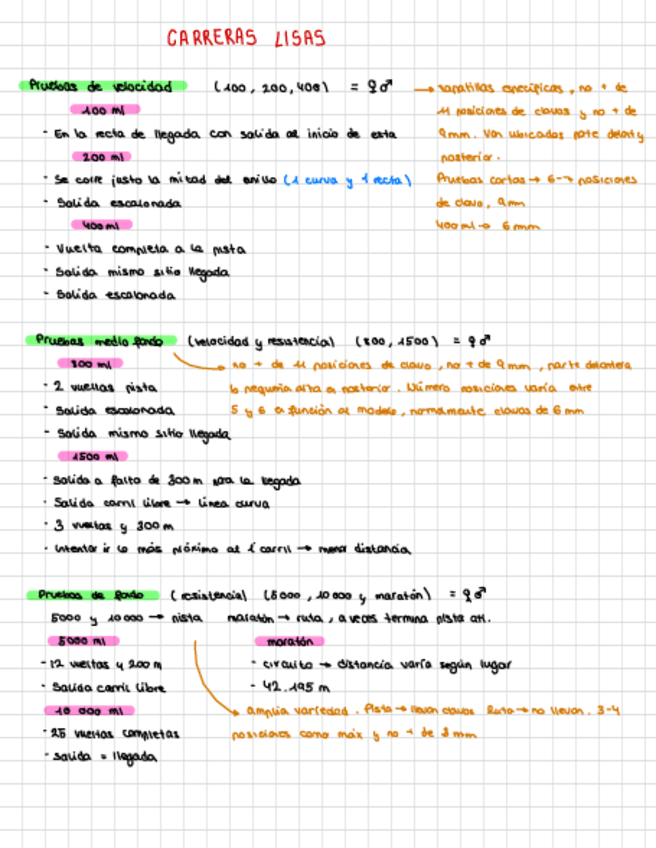 CARRERAS LISAS
Pruebas de velocidad (100, 200, 400) = ♀♂ → zapatillas específicas, no + de
100 ml 11 posiciones de clavos y no + de
- En la recta de llegada con salida al inicio de esta 9mm. Van ubicados parte delant y
200 ml posterior.
- Se corre justo la mitad del anillo (1 curva y 1 recta) Pruebas cortas → 6-7 posiciones
- Salida escalonada de clavo, 9mm
400 ml 400 ml → 6mm
- Vuelta completa a la pista
- Salida mismo sitio llegada
- Salida escalonada
Pruebas medio fondo (velocidad y resistencia) (800, 1500) = ♀♂
800 ml no + de 11 posiciones de clavo, no + de 9mm, parte delantera
- 2 vueltas pista posterior. Número posiciones varía entre
- Salida escalonada 5 y 6 función modelo, normalmente clavos de 6mm
- Salida mismo sitio llegada
1500 ml
- Salida a falta de 300m para la llegada
- Salida carril libre → línea curva
- 3 vueltas y 300m
- Intentar ir lo más próximo al 1 carril → menor distancia
Pruebas de fondo (resistencia) (5000, 10000 y maratón) = ♀♂
5000 y 10000 → pista maratón → ruta, a veces termina pista atl.
5000 ml maratón
- 12 vueltas y 200m - circuito → distancia varía según lugar
- Salida carril libre - 42.195 m
10 000 ml amplia variedad. Pista → llevan clavos Ruta → no llevan. 3-4
- 25 vueltas completas posiciones como máx y no + de 3mm
- salida = llegada